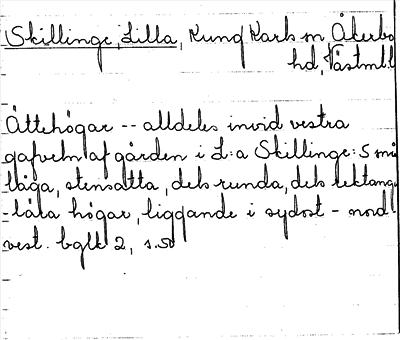 Skillinge, Lilla, Kung Karls sn Åkerbo
hd, Västml.
Ättehögar -- alldeles invid vestra
gafveln af gården i L:a Skillinge: 5 små
låga, stensatta, dels runda, dels rektangu
-lära högar, liggande i sydost - nord
vest. bglt 2, s. 50